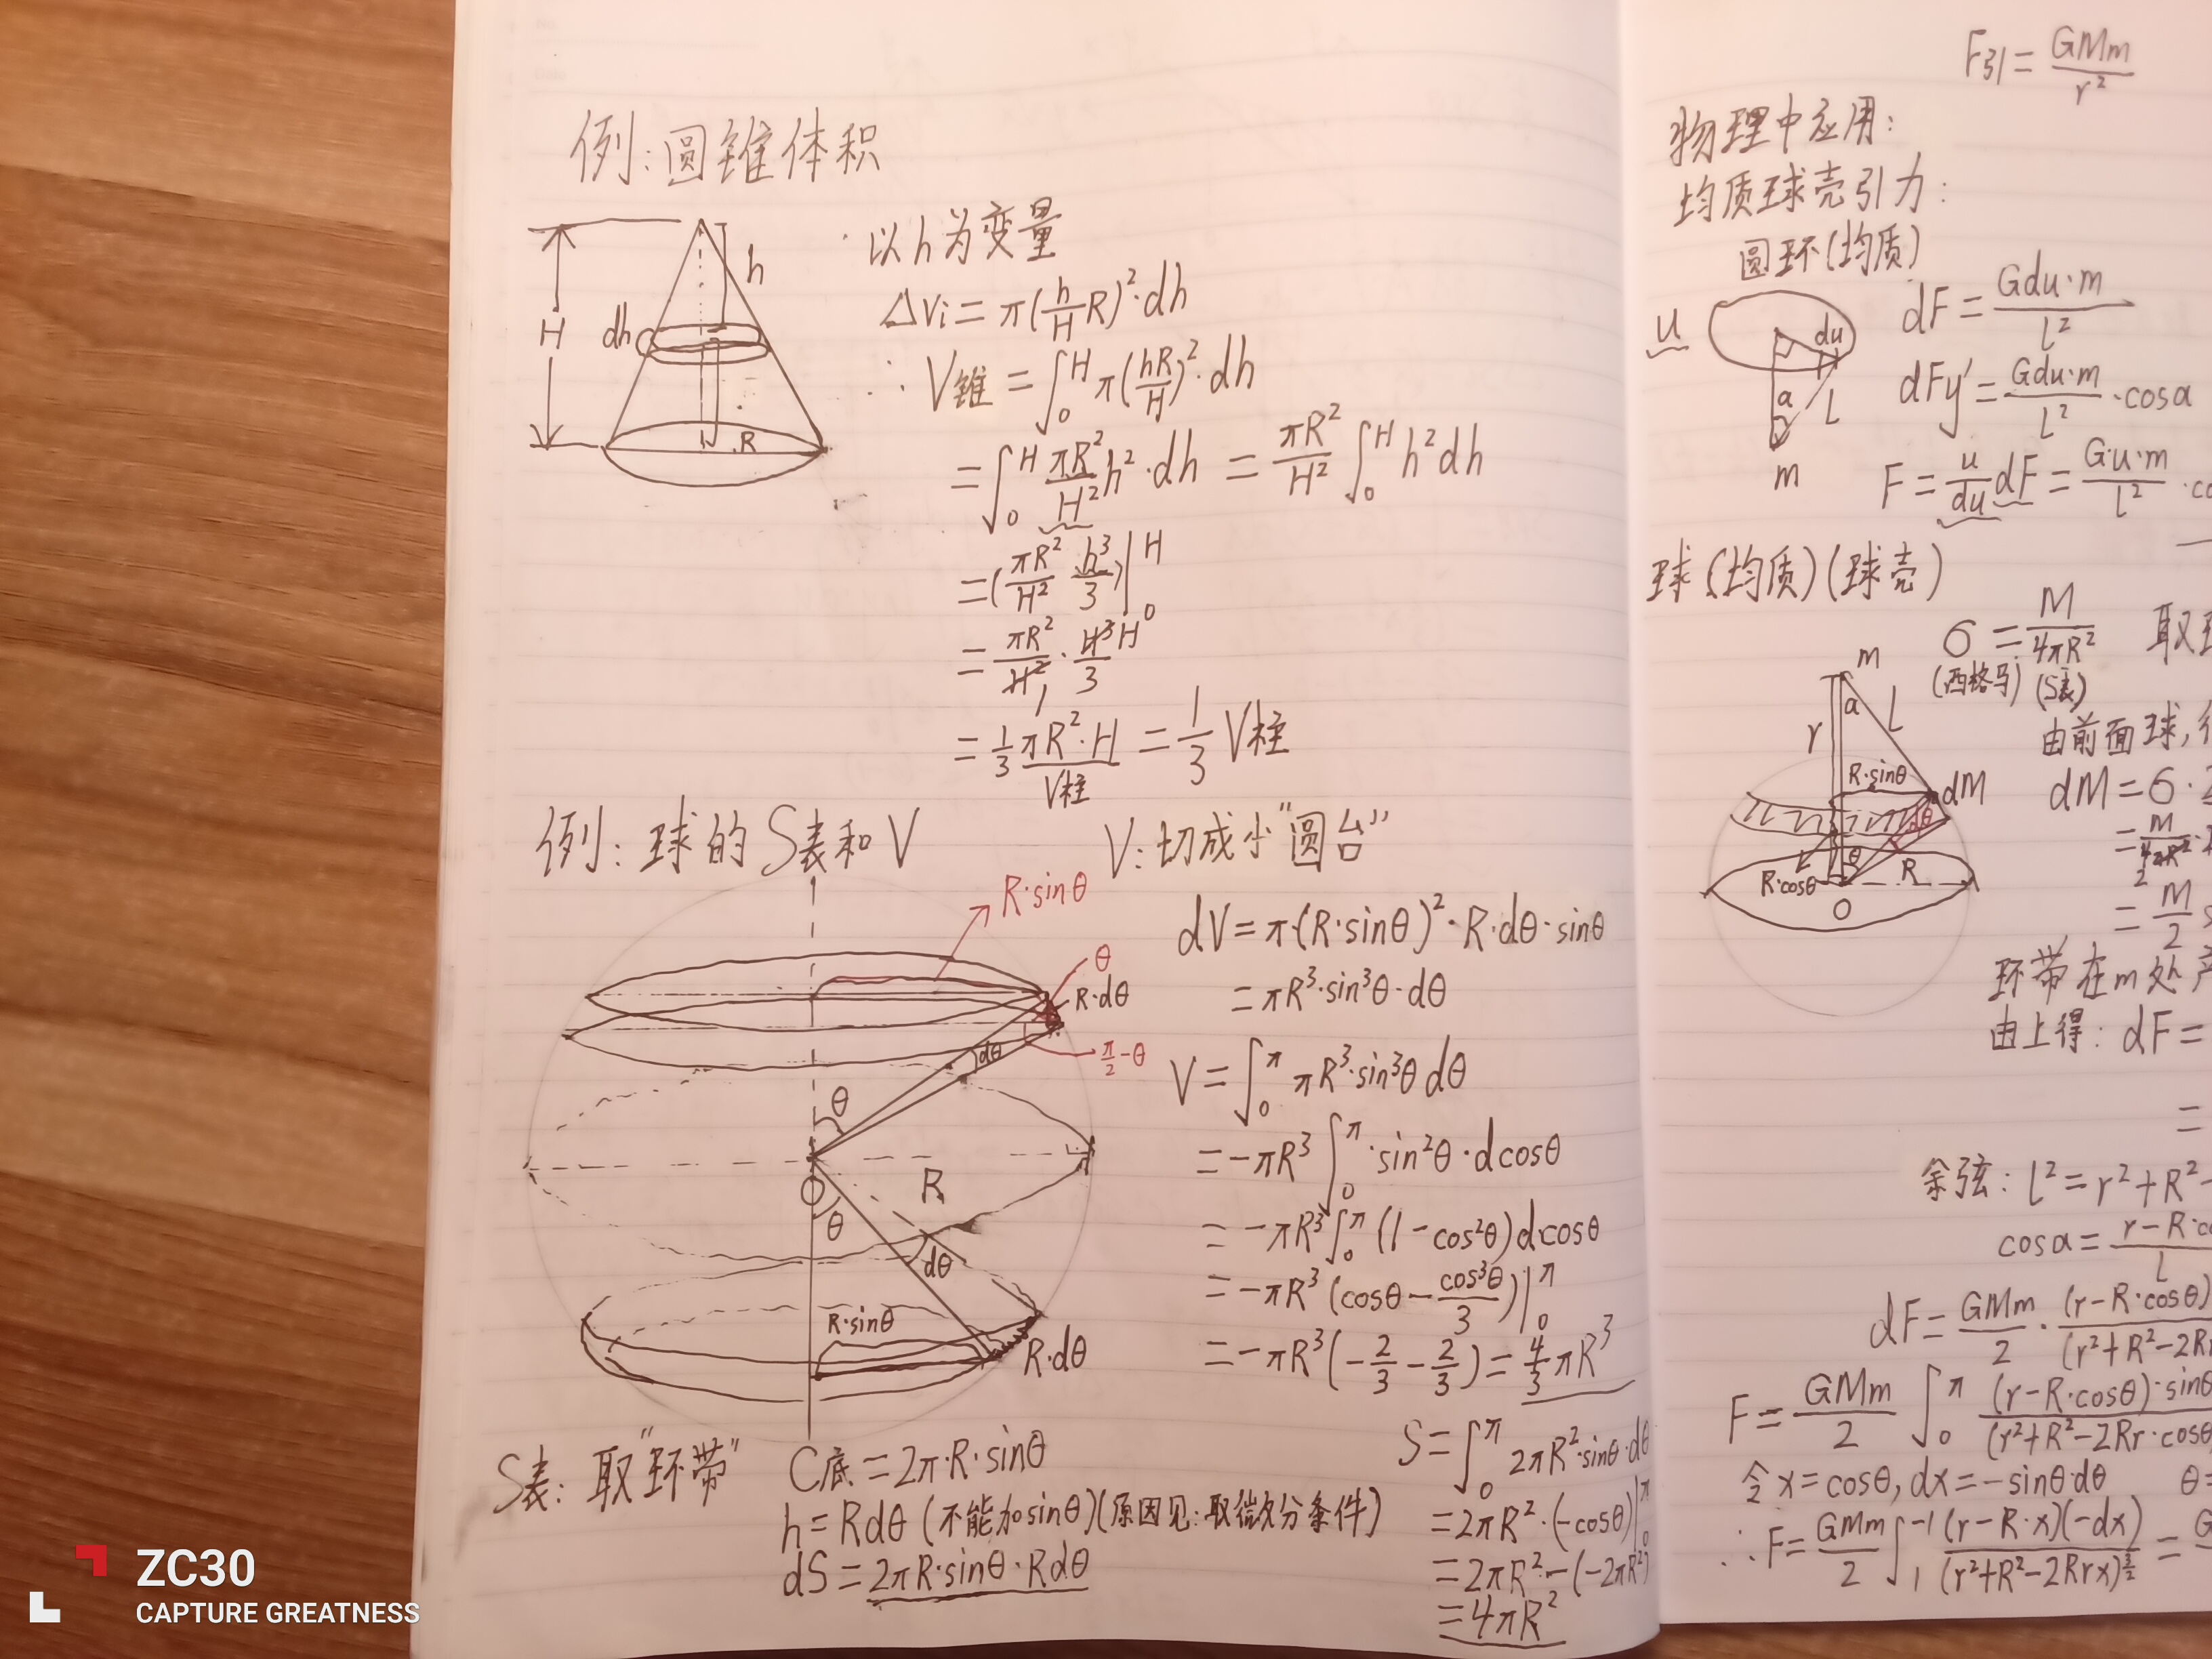 例：圆锥体积
H
h
dh
R
以h为变量
△Vi = π(h/H R)²·dh
∴ V锥 = ∫₀ᴴ π(hR/H)²·dh
= ∫₀ᴴ πR²/H² h²·dh = πR²/H² ∫₀ᴴ h²dh
= (πR²/H² h³/3)|₀ᴴ
= πR²/H² · H³/3 H
1
= 1/3 πR²·H = 1/3 V柱
V柱
例：球的S表和V
R·sinθ
θ
R·dθ
π/2-θ
dθ
θ
O
R
θ
dθ
R·sinθ
R·dθ
V：切成小"圆台"
dV = π·(R·sinθ)²·R·dθ·sinθ
= πR³·sin³θ·dθ
V = ∫₀^π πR³·sin³θ dθ
= -πR³ ∫₀^π ·sin²θ·dcosθ
= -πR³ ∫₀^π (1-cos²θ)dcosθ
= -πR³ (cosθ - cos³θ/3)|₀^π
= -πR³(-2/3 - 2/3) = 4/3 πR³
S表：取"环带" C底 = 2π·R·sinθ
h = Rdθ (不能加sinθ)(原因见：取微分条件)
dS = 2πR·sinθ·Rdθ
S = ∫₀^π 2πR²·sinθ·dθ
= 2πR²·(-cosθ)|₀^π
= 2πR² - (-2πR²)
= 4πR²
F引 = GMm/r²
物理中应用：
均质球壳引力：
圆环(均质)
u
du
a
l
m
dF = Gdu·m/l²
dFy' = Gdu·m/l² ·cosa
F = u/du dF = G·u·m/l²
球(均质)(球壳)
σ = M/4πR² 取
(西格马) (S表)
m
a
l
r
R·sinθ
dM
dθ
θ
R
R·cosθ
O
由前面球,
dM = σ·2
= M/4πR²
2
= M/2
环带在m处
由上得：dF =
=
余弦：l² = r²+R²-
cosa = r-R·co/l
dF = GMm/2 · (r-R·cosθ)/(r²+R²-2Rr
F = GMm/2 ∫₀^π (r-R·cosθ)·sinθ/(r²+R²-2Rr·cosθ
令x = cosθ, dx = -sinθ·dθ θ=
∴ F = GMm/2 ∫₁^-1 (r-R·x)(-dx)/(r²+R²-2Rrx)^3/2 = G
ZC30
CAPTURE GREATNESS